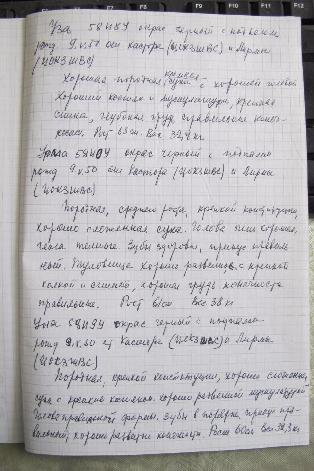 Уза 58Н89 окрас черный с подпалом
рожд 9.V.50 от Кастора (ЦОКЗШВС) и Лирмы
(ЦОКЗШВС)
Хорошая породная крепкая сука с хорошей головой
Хороший костяк и мускулатура, крепкая
спина, глубокая грудь, правильные конеч-
ности. Рост 63 см. Вес 32,4 кг
окрас черный с подпалом
рожд 9.V.50 от Кастора (ЦОКЗШВС) и
(ЦОКЗШВС)
Породная, среднего роста, крепкой конституции,
хорошо сложенная сука. Голова хорошая,
глаза темные. Зубы здоровы, прикус правиль-
ный. Туловище хорошо развитое с крепкой
и спиной, хорошая грудь, конечности
правильные. Рост 61см Вес 38 кг
окрас черный с подпалом
рожд 9.V.50 от Кастора (ЦОКЗШВС) и Лирмы
(ЦОКЗШВС)
Породная, крепкой конституции, хорошо сложенная,
сука с крепким костяком, хорошо развитой мускулатурой
Голова правильной формы. Зубы в порядке, прикус пра-
вильный, хорошо развиты конечности. Рост 61см Вес